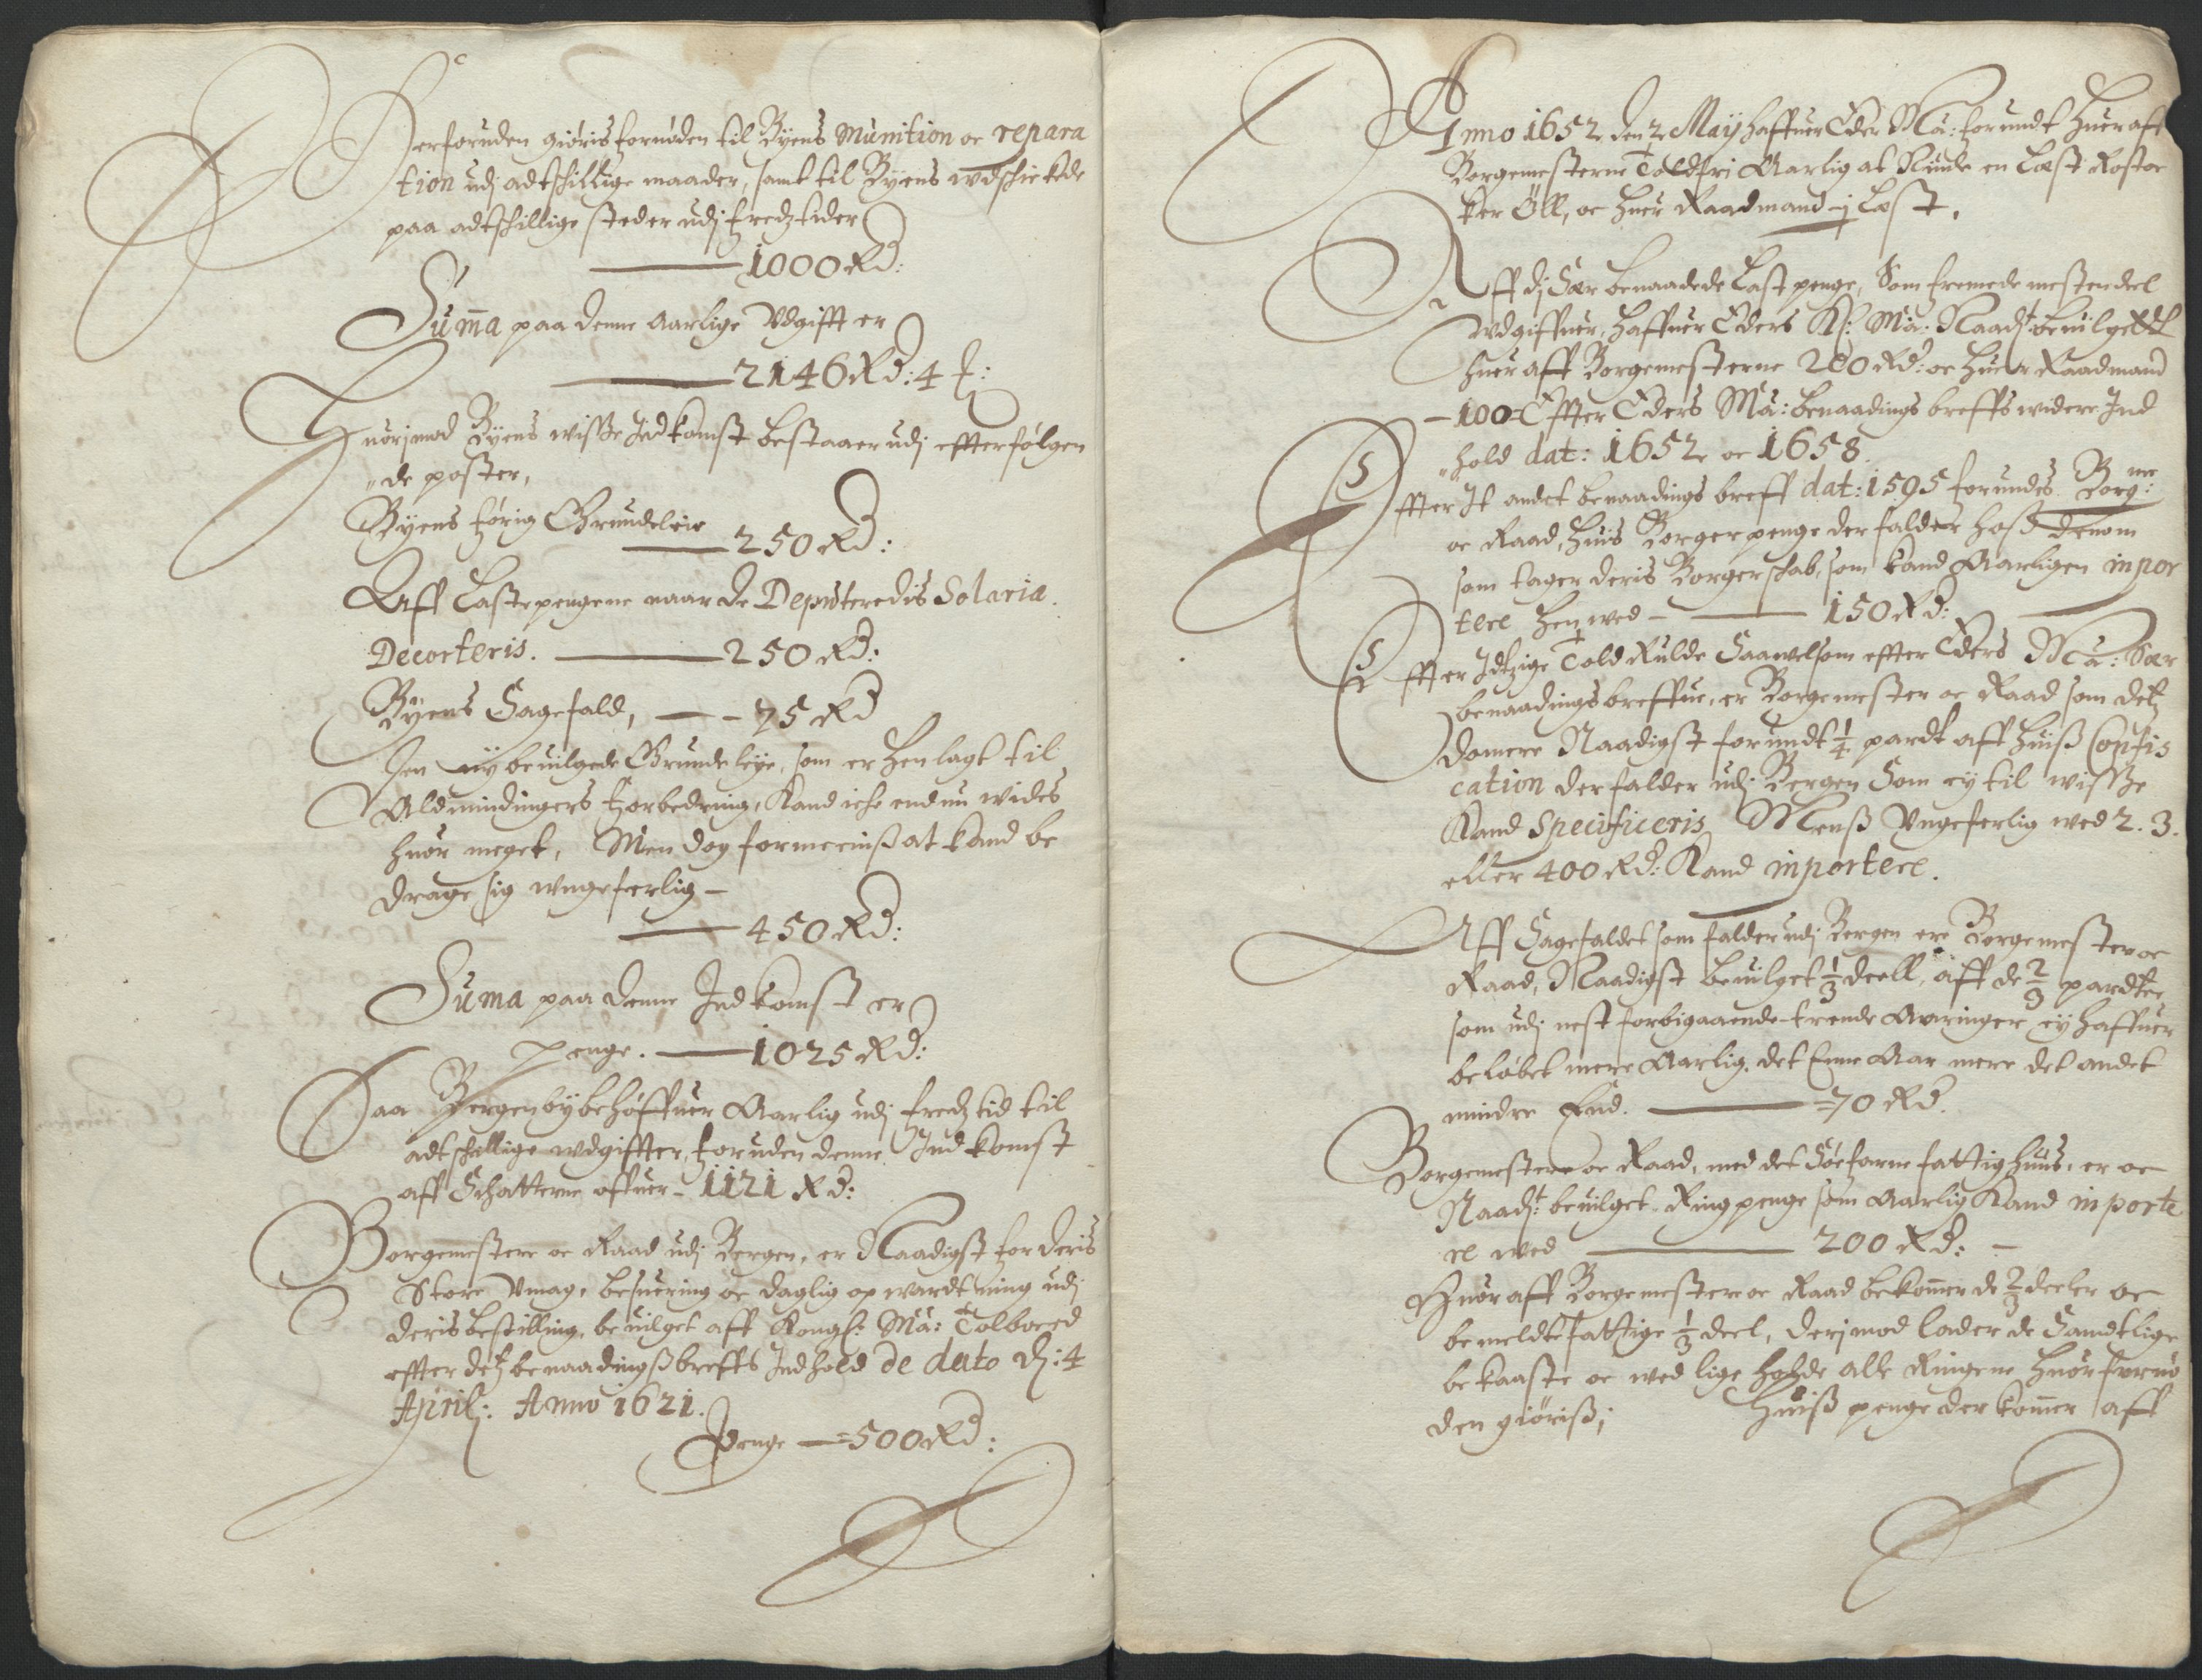 Derforuden giøris fornøden til Byens Munition oc repara
tion udj adtschillige maader, samt til Byens wdschickede
paa adtschillige steder udj fredztider
1000 Rd:
Suma paa denne Aarlige Vdgifft er
2146 Rd: 4
Huorjmod Byens wisse Indkomst bestaaer udj effterfølgen
de poster,
Byens førig Grundeleie 250 Rd:
Aff Lastepengene naar de Deputeredis Solaria
Decorteris. 250 Rd:
Byens Sagefald, 75 Rd
Den ny beuilgede Grundeleye, som er henlagt til
Aldmindingers forbedring, Kand iche endnu wides
huor meget, Men dog formeeniß at kand be
drage sig wngeferlig
450 Rd:
Suma paa denne Indkomst er
Penge. 1025 Rd:
Saa Bergen by behøffuer Aarlig udj fredz tid til
adtschellige wdgiffter, foruden denne Indkomst
aff Schatterne offuer 1121 Rd:
Borgemestere oc Raad udj Bergen, er Naadigst for deris
Store Vmag, besuering oc daglig opwardtning udj
deris bestilling, beuilget aff Kongl: Ma: Tolboed
effter detz benaadingßbreffs Indhold de dato d: 4
April: Anno 1621.
Penge 500 Rd:
Anno 1652 den 2 Maij haffuer Eder Ma: forundt huer aff
Borgemesterne Toldfri Aarlig at Nyde en Læst Rosto
ker Öll, oc huer Raadmand ½ Læst.
Aff dj Sær benaadede Last penge, Som fremede mestendeel
wdgiffuer, haffuer Eders Kl: Ma: Naadst beuilgett
huer aff Borgemesterne 200 Rd: oc huer Raadmand
100 Effter Eders Ma: benaadings breffs widere Ind
hold dat: 1652 oc 1658.
Effter It andet benaadings breff dat: 1595 forundes Borg: me
oc Raad, huis Borgerpenge der falder hoß dennom
som tager deris Borgerschab, som kand Aarligen inpor
tere hen wed 150 Rd:
Effter Idtzige Told Rulde Saawelsom effter Eders Ma: Sær
benaadings breffue, er Borgemester oc Raad som detz
domere Naadigst forundt ¼ pardt aff huiß Confis
cation der falder udj Bergen Som ey til wisse
Kand Specificeris Menß Vngeferlig wed 2. 3.
eller 400 Rd: Kand inportere.
Aff Sagefaldet som falder udj Bergen ere Borgemester oc
Raad, Naadigst beuilget ⅓ deell, aff de ⅔ pardter
som udj nest forbigaaende trende Aaringer ey haffuer
beløbet mere Aarlig, det Enne Aar mere det andet
mindre End. 70 Rd.
Borgemestere oc Raad, med det Søefarne fattighuus, er oc
Naadst: beuilget Ringpenge som Aarlig Kand inporte
re wed 200 Rd:
Huoraff Borgemestere oc Raad bekomer de ⅔ deeler oc
bemeldte fattige ⅓ deel, derjmod lader de Samdtlige
bekaaste oc wed lige holde alle Ringene huor fornø
den giøriß; Huiß penge der komer aff